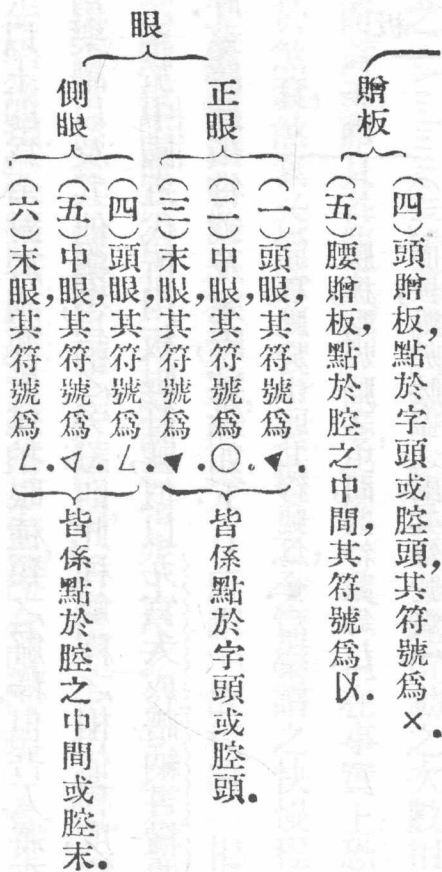 贈板
(四)頭贈板,點於字頭或腔頭,其符號爲×.
(五)腰贈板,點於腔之中間,其符號爲㕥.
眼
正眼
(一)頭眼,其符號爲◥.
(二)中眼,其符號爲○.
(三)末眼,其符號爲◥.
皆係點於字頭或腔頭.
側眼
(四)頭眼,其符號爲ㄥ.
(五)中眼,其符號爲◁.
(六)末眼,其符號爲ㄥ.
皆係點於腔之中間或腔末.